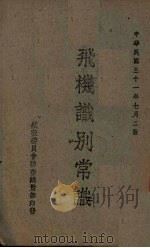 中華民國三十一年七月二版
飛機識別常識
航空委員會防空總監部印發